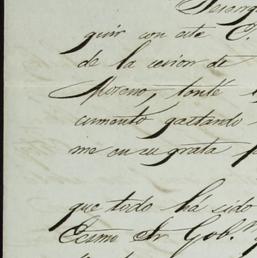 quir con este
de la cesion de
Moreno, tonté
cumento, gastando
me en su grata
que todo ha sido
Ecsmo Sr Gob.